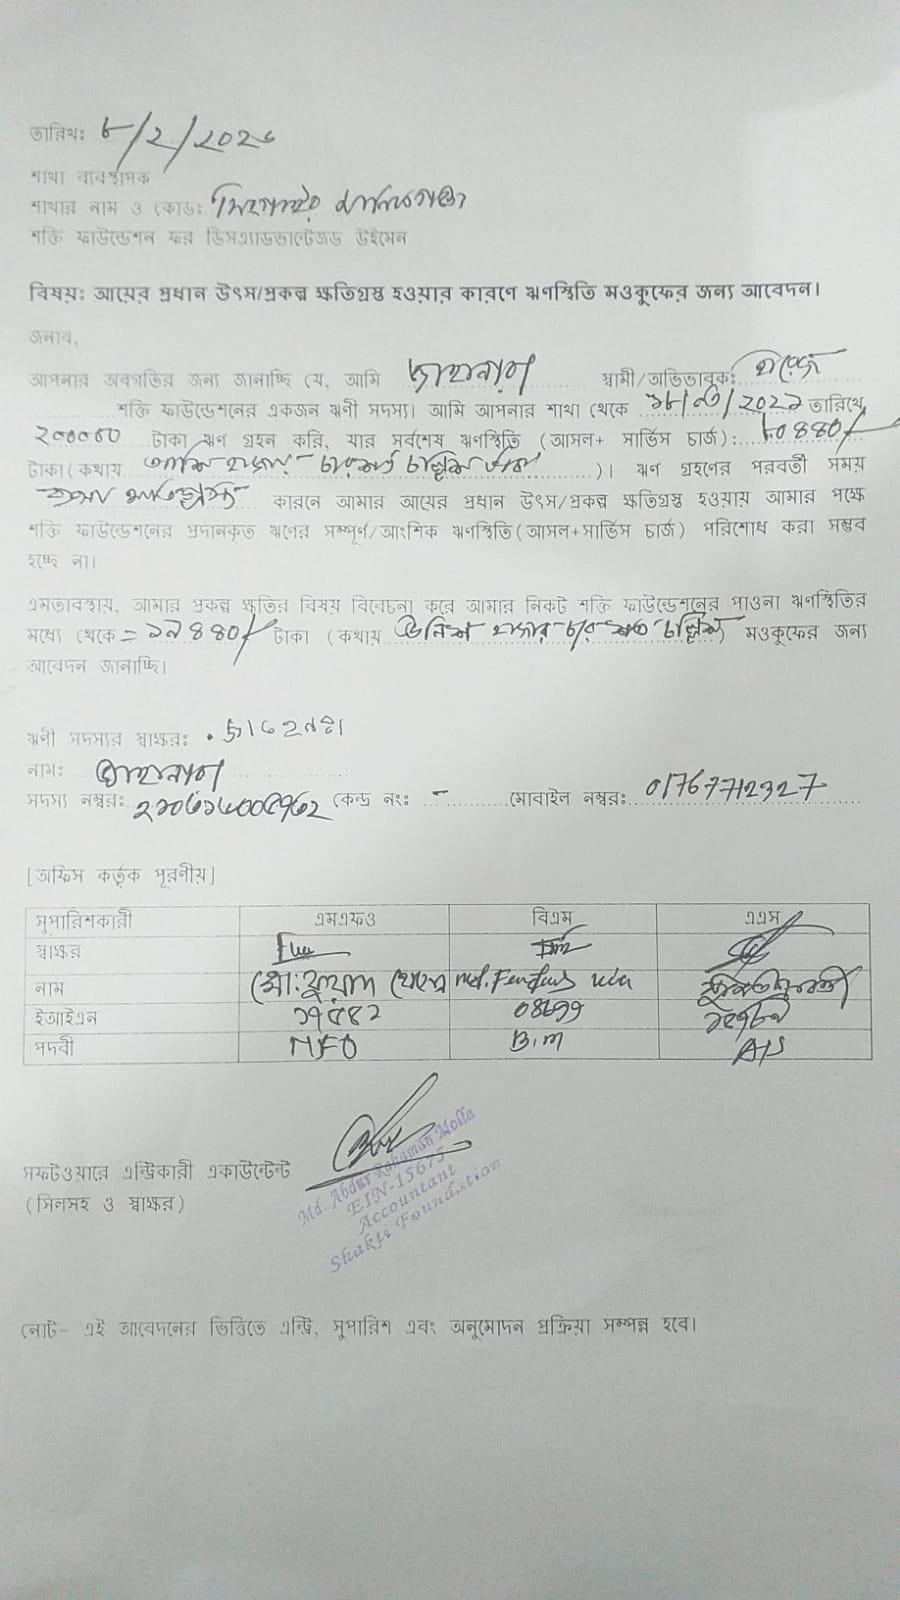 তারিখ: ৮/২/২০২৬
শাখা ব্যবস্থাপক
শাখার নাম ও কোড: সিংগাইর মানিকগঞ্জ
শক্তি ফাউন্ডেশন ফর ডিসএ্যাডভান্টেজড উইমেন
বিষয়: আয়ের প্রধান উৎস/প্রকল্প ক্ষতিগ্রস্ত হওয়ার কারণে ঋণস্থিতি মওকুফের জন্য আবেদন।
জনাব,
আপনার অবগতির জন্য জানাচ্ছি যে, আমি জাহানারা স্বামী/অভিভাবক:
শক্তি ফাউন্ডেশনের একজন ঋণী সদস্য। আমি আপনার শাখা থেকে তারিখে
২০০০০০ টাকা ঋণ গ্রহন করি, যার সর্বশেষ ঋণস্থিতি (আসল+ সার্ভিস চার্জ): ৮০৪৪০/
টাকা(কথায় আশি হাজার চারশত চল্লিশ টাকা)। ঋণ গ্রহণের পরবর্তী সময়
কারনে আমার আয়ের প্রধান উৎস/প্রকল্প ক্ষতিগ্রস্ত হওয়ায় আমার পক্ষে
শক্তি ফাউন্ডেশনের প্রদানকৃত ঋণের সম্পূর্ণ/আংশিক ঋণস্থিতি(আসল+সার্ভিস চার্জ) পরিশোধ করা সম্ভব
হচ্ছে না।
এমতাবস্থায়, আমার প্রকল্প ক্ষতির বিষয় বিবেচনা করে আমার নিকট শক্তি ফাউন্ডেশনের পাওনা ঋণস্থিতির
মধ্যে থেকে = ১৯৪৪০/ টাকা (কথায় উনিশ হাজার চার শত চল্লিশ) মওকুফের জন্য
আবেদন জানাচ্ছি।
ঋণী সদস্যর স্বাক্ষর:
নাম: জাহানারা
সদস্য নম্বর: কেন্দ্র নং: - মোবাইল নম্বর: 01767712327
[অফিস কর্তৃক পূরণীয়]
সুপারিশকারী এমএফও বিএম এএস
স্বাক্ষর
নাম মো: Md.
ইআইএন ১৭৫৪২
পদবী MFO B.M A/S
সফটওয়ারে এন্ট্রিকারী একাউন্টেন্ট
(সিলসহ ও স্বাক্ষর)
Md. Abdur Rahaman Molla
EIN-15675
Accountant
Shakti Foundation
নোট- এই আবেদনের ভিত্তিতে এন্ট্রি, সুপারিশ এবং অনুমোদন প্রক্রিয়া সম্পন্ন হবে।